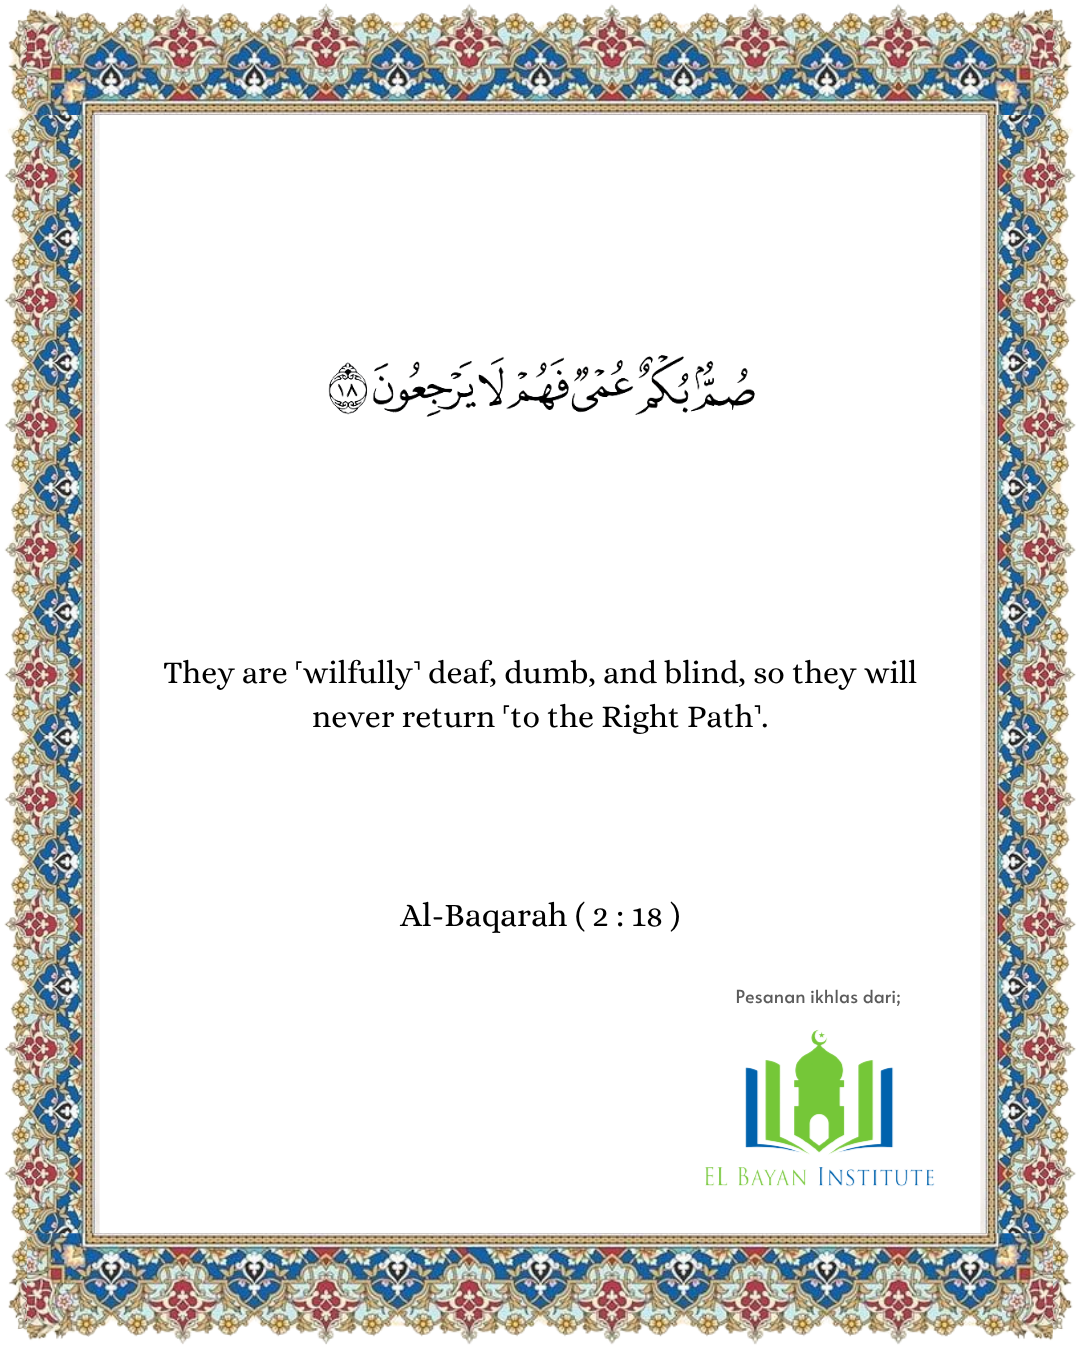 صُمٌّۢ بُكْمٌ عُمْىٌۭ فَهُمْ لَا يَرْجِعُونَ ١٨
They are ⸢wilfully⸣ deaf, dumb, and blind, so they will
never return ⸢to the Right Path⸣.
Al-Baqarah ( 2 : 18 )
Pesanan ikhlas dari;
EL BAYAN INSTITUTE